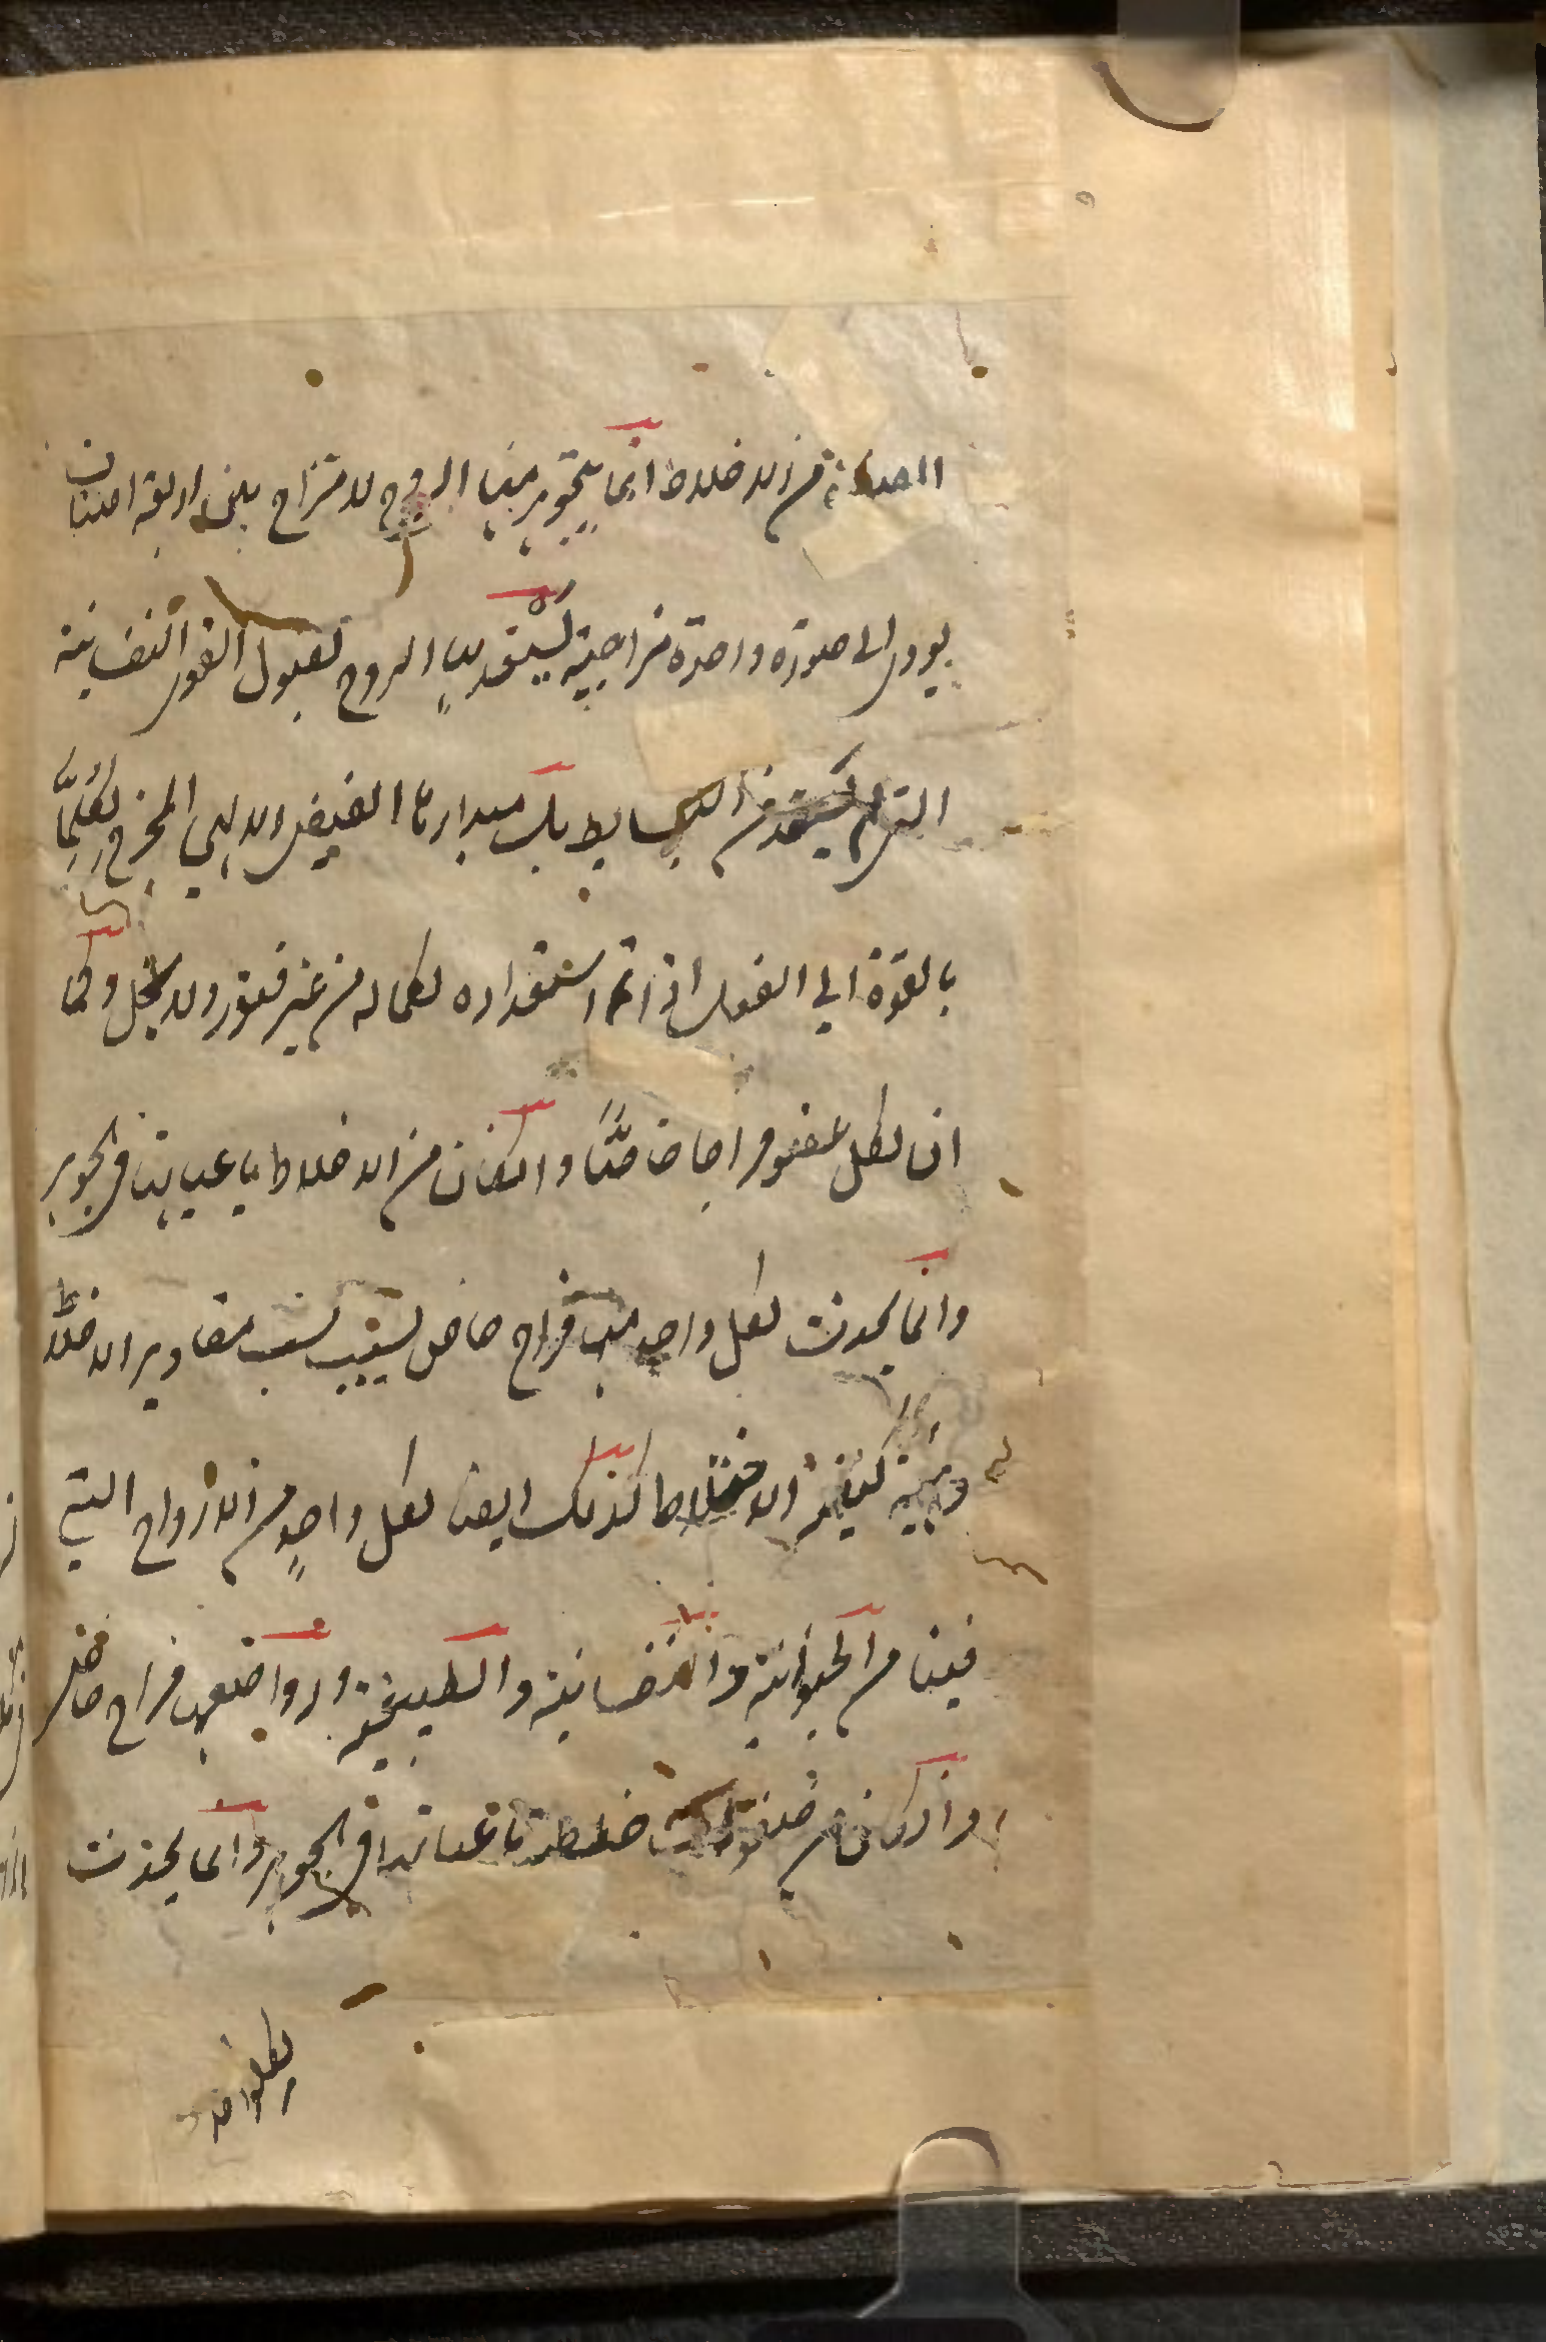 الصادرة من الاخلاط انما يتجوهر منها الروح لامتزاج بين اربعة اصناف
يودي الى صورة واحدة مزاجية يستعد بها الروح لقبول القوى النفسانية
التي لم يستعد من البسايط بل مبداها الفيض الالهي المخرج لكل ما
بالقوة الي الفعل اذا تم استعداده لكماله من غير فتور ولا بخل وكما
ان لكل عضو مزاجا خاصًّا وان كان من الاخلاط باعيانها في الجوهر
وانما يحدث لكل واحد منها مزاج خاص بسبب نسب مقادير الاخلاط
وهيئة كيفية الاختلاط كذلك ايضا لكل واحدٍ من الارواح التي
فينا من الحيوانية والنفسانية والطبيعية ومواضعها مزاج خاص
وان كان من اخلاط باعيانها في الجوهر وانما يحدث
لكل واحد